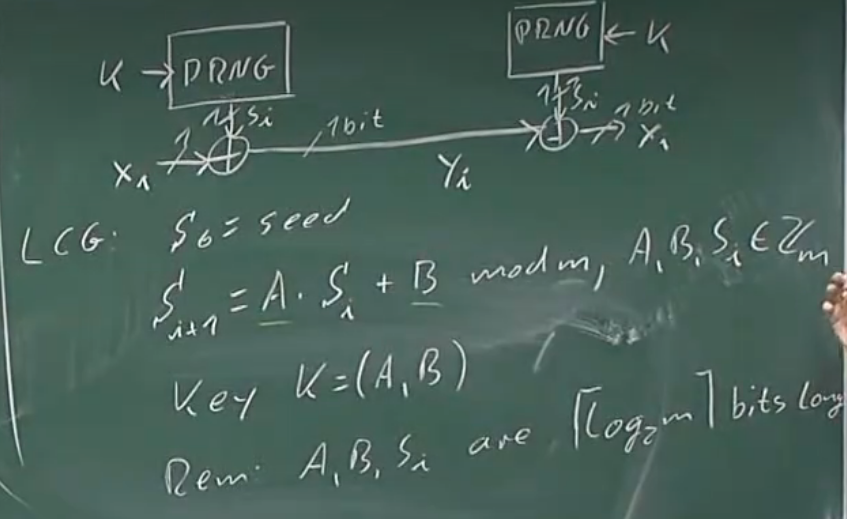 K → PRNG PRNG ← K
1 Si 1 Si
1 bit 1 bit
X1 Yi X1
LCG: S0 = seed
Si+1 = A · Si + B mod m, A, B, Si ∈ ℤm
Key K = (A, B)
Rem: A, B, Si are ⌈log2 m⌉ bits long